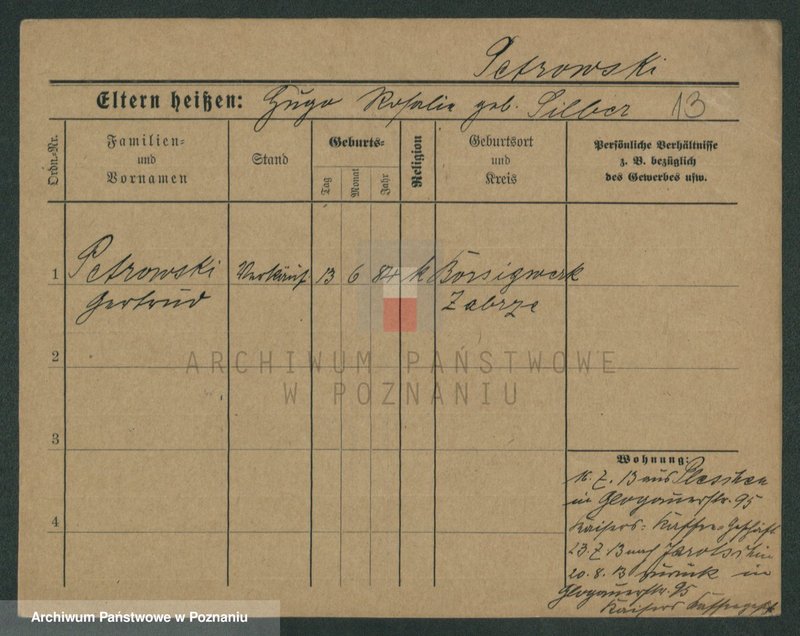 Petrowski
Eltern heißen: Hugo Rosalie geb. Silber 13
Ordn.-Nr.
Familien-
und
Vornamen
Stand
Geburts-
Tag
Monat
Jahr
Religion
Geburtsort
und
Kreis
Persönliche Verhältnisse
z. B. bezüglich
des Gewerbes usw.
1 Petrowski Verkäuf. 13 6 84 k Borsigwerk
Gertrud Zabrze
2
3
4
Wohnung:
7. 13 aus Pleschen
in Glogauerstr. 95
Kaisers-Kaffee-Geschäft
23.7.13 nach Jarotschin
20.8.13 zurück in
Glogauerstr. 95
Kaisers Kaffeegesch.
ARCHIWUM PAŃSTWOWE
W POZNANIU
Archiwum Państwowe w Poznaniu